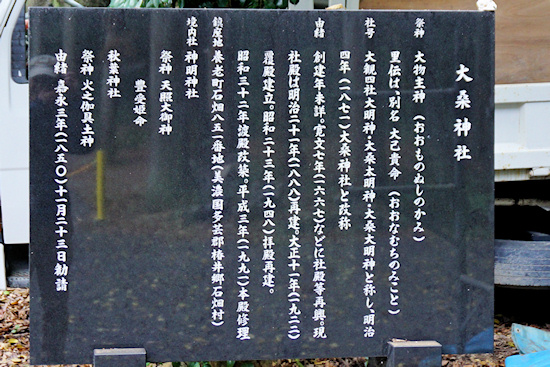 大桑神社
祭神 大物主神 (おおものぬしのかみ)
里伝は、別名 大己貴命 (おおなむちのみこと)
社号 大観四社大明神・大桑太明神・大桑大明神と称し、明治
四年(一八七一)大桑神社と改称
由緒 創建年未詳。寛文七年(一六六七)などに社殿等再興。現
社殿は明治二十一年(一八八八)再建。大正十一年(一九二二)
覆殿建立。昭和二十三年(一九四八)拝殿再建。
昭和三十二年渡殿改築。平成三年(一九九一)本殿修理
鎮座地 養老町石畑八五一番地(美濃国多芸郡椿井郷石畑村)
境内社 神明神社
祭神 天照大御神
豊受姫命
秋葉神社
祭神 火之伽具土神
由緒 嘉永三年(一八五〇)十一月二十三日勧請